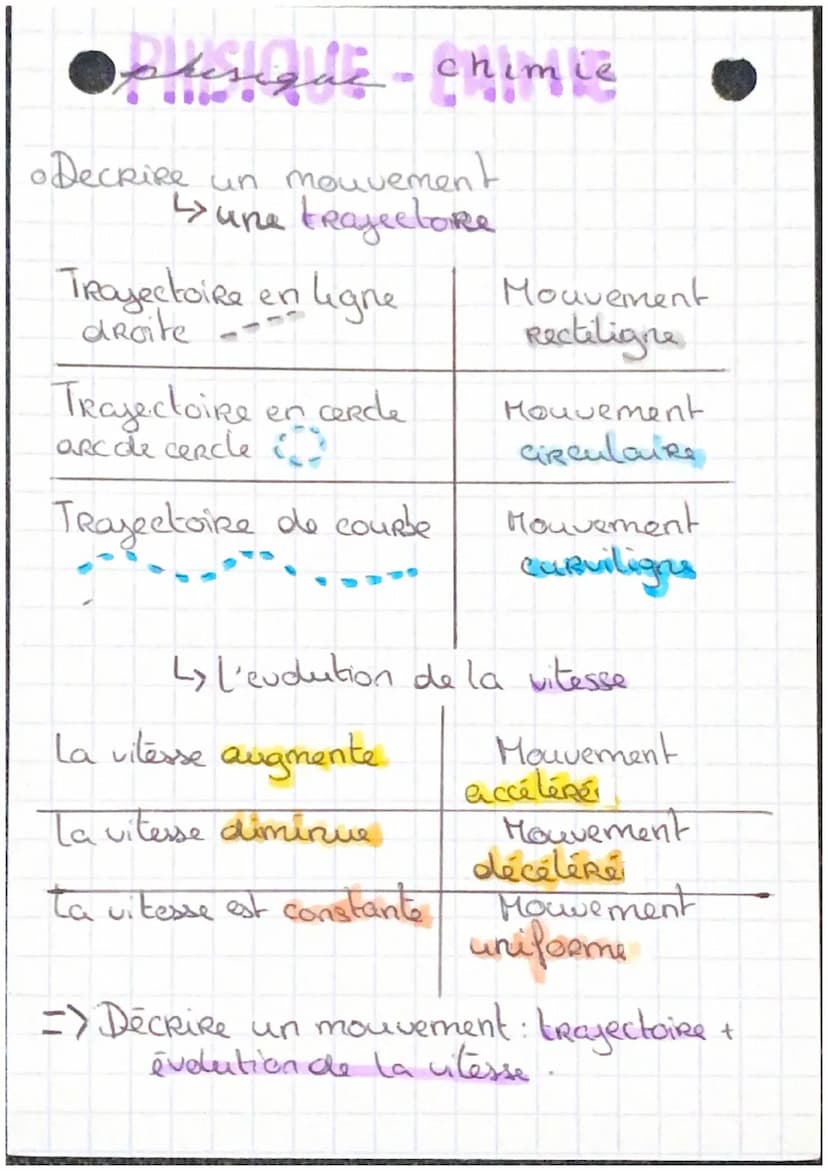 physique - chimie
Decrire un mouvement
↳ une trajectoire
Trajectoire en ligne
droite
Mouvement
rectiligne
Trajectoire en cercle
arc de cercle
Mouvement
circulaire
Trajectoire de courbe
Mouvement
curviligne
↳ L'evolution de la vitesse
La vitesse augmente
Mouvement
accéléré
La vitesse diminue
Mouvement
décéléré
La vitesse est constante
Mouvement
uniforme
=> Décrire un mouvement : trajectoire +
évolution de la vitesse.